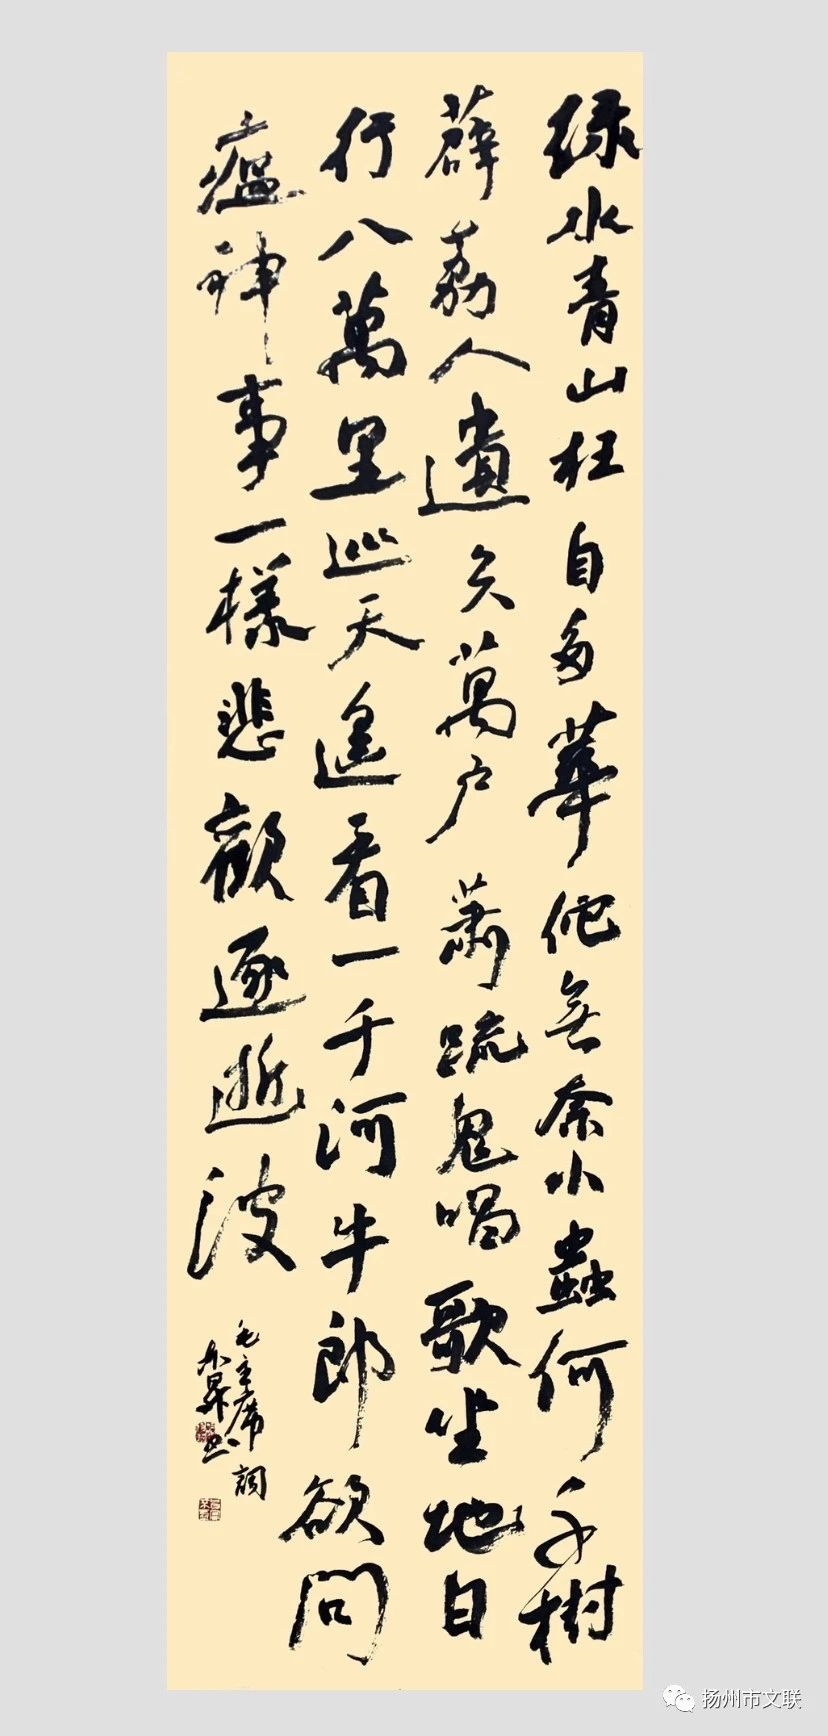 绿水青山枉自多華佗無奈小蟲何千樹
薜荔人遺矢萬户蕭疏鬼唱歌坐地日
行八萬里巡天遥看一千河牛郎欲問
瘟神事一樣悲歡逐逝波
毛主席詞
扬州市文联